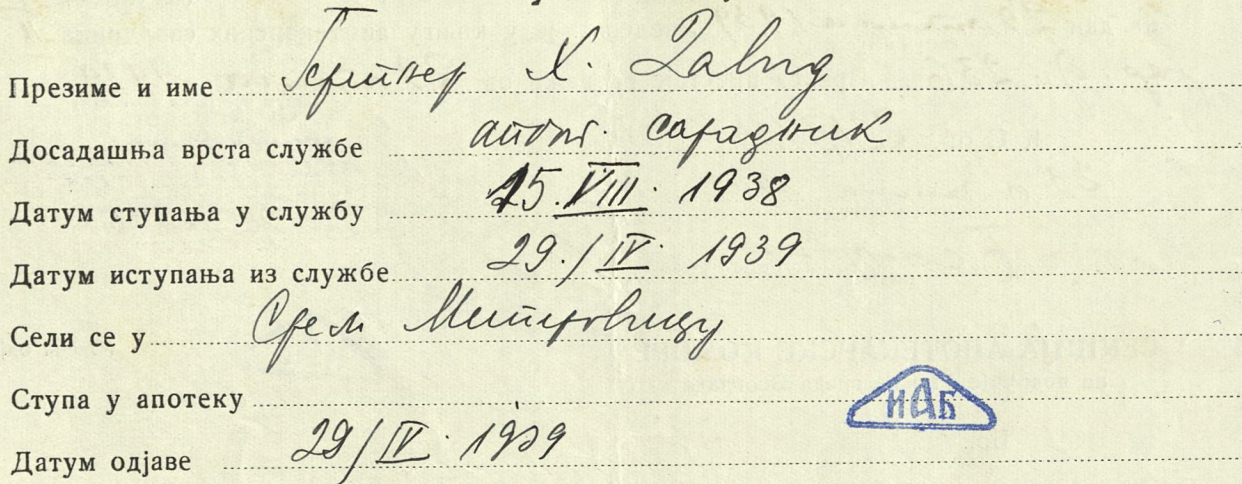 Презиме и име Гертнер Х. Давид
Досадашња врста службе апот. сарадник
Датум ступања у службу 15. VIII. 1938
Датум иступања из службе 29./IV. 1939
Сели се у Срем Митровицу
Ступа у апотеку
ИАБ
Датум одјаве 29/IV. 1939